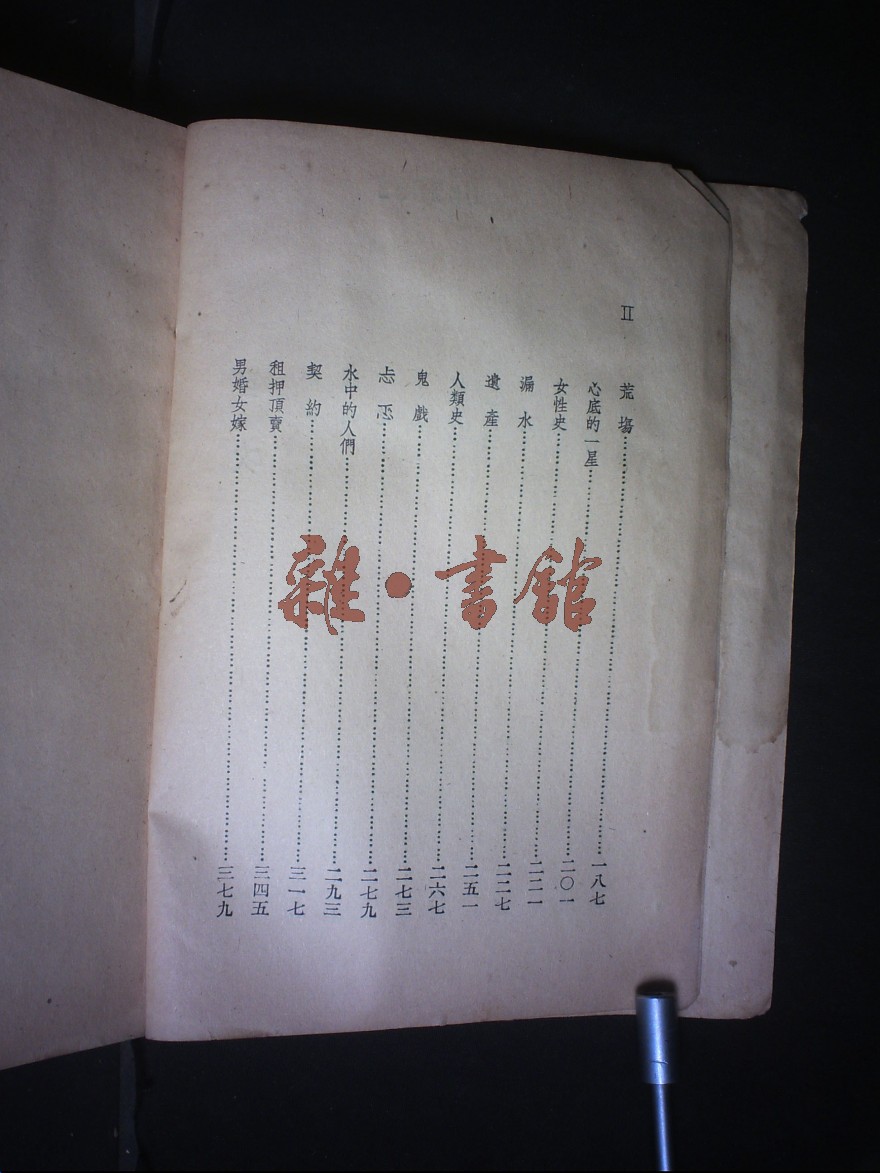 II
荒塲……一八七
心底的一星……二〇一
女性史……二二一
漏水……二二七
遺產……二五一
人類史……二六七
鬼戲……二七三
忐忑……二七九
水中的人們……二九三
契約……三一七
租押頂賣……三四五
男婚女嫁……三七九
雜·書館